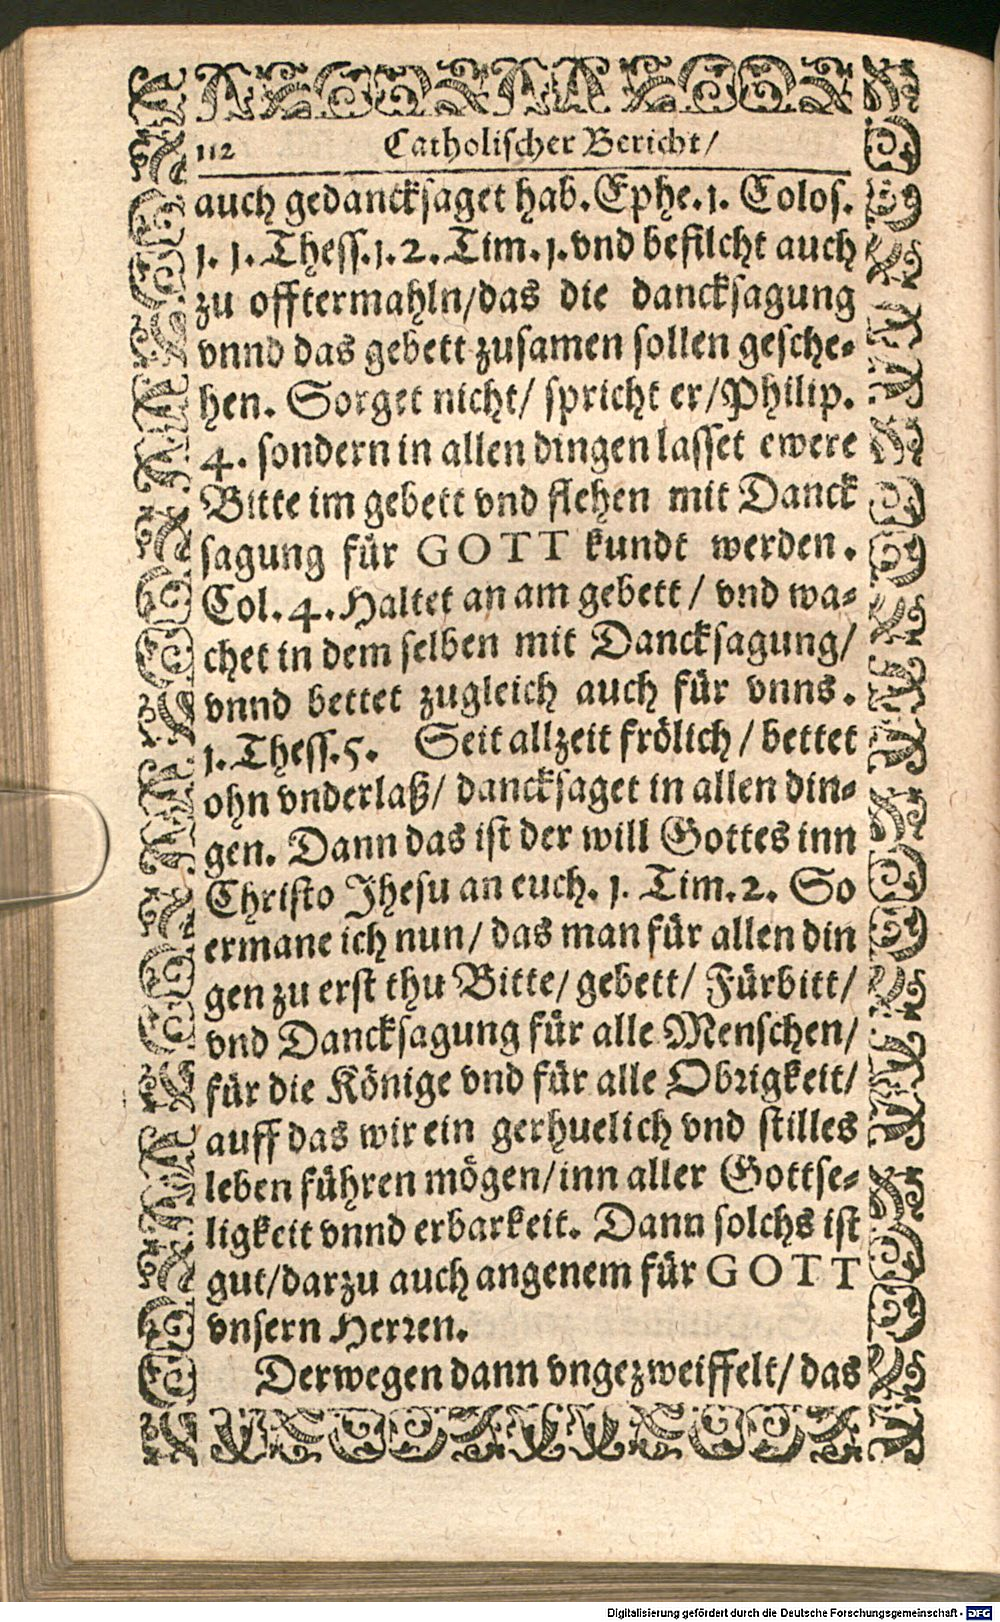 112 Catholischer Bericht/
auch gedancksaget hab. Ephe. 1. Colos.
1. 1. Thess. 1. 2. Tim. 1. vnd befilcht auch
zu offtermahln/das die dancksagung
vnnd das gebett zusamen sollen gesche-
hen. Sorget nicht/ spricht er/Philip.
4. sondern in allen dingen lasset ewere
Bitte im gebett vnd flehen mit Danck
sagung für GOTT kundt werden.
Col. 4. Haltet an am gebett/ vnd wa-
chet in dem selben mit Dancksagung/
vnnd bettet zugleich auch für vnns.
1. Thess. 5. Seit allzeit frölich/ bettet
ohn vnderlaß/ dancksaget in allen din-
gen. Dann das ist der will Gottes inn
Christo Jhesu an euch. 1. Tim. 2. So
ermane ich nun/ das man für allen din
gen zu erst thu Bitte/ gebett/ Fürbitt/
vnd Dancksagung für alle Menschen/
für die Könige vnd für alle Obrigkeit/
auff das wir ein gerhuelich vnd stilles
leben führen mögen/inn aller Gottse-
ligkeit vnnd erbarkeit. Dann solchs ist
gut/darzu auch angenem für GOTT
vnsern Herren.
Derwegen dann vngezweiffelt/ das
Digitalisierung gefördert durch die Deutsche Forschungsgemeinschaft - DFG